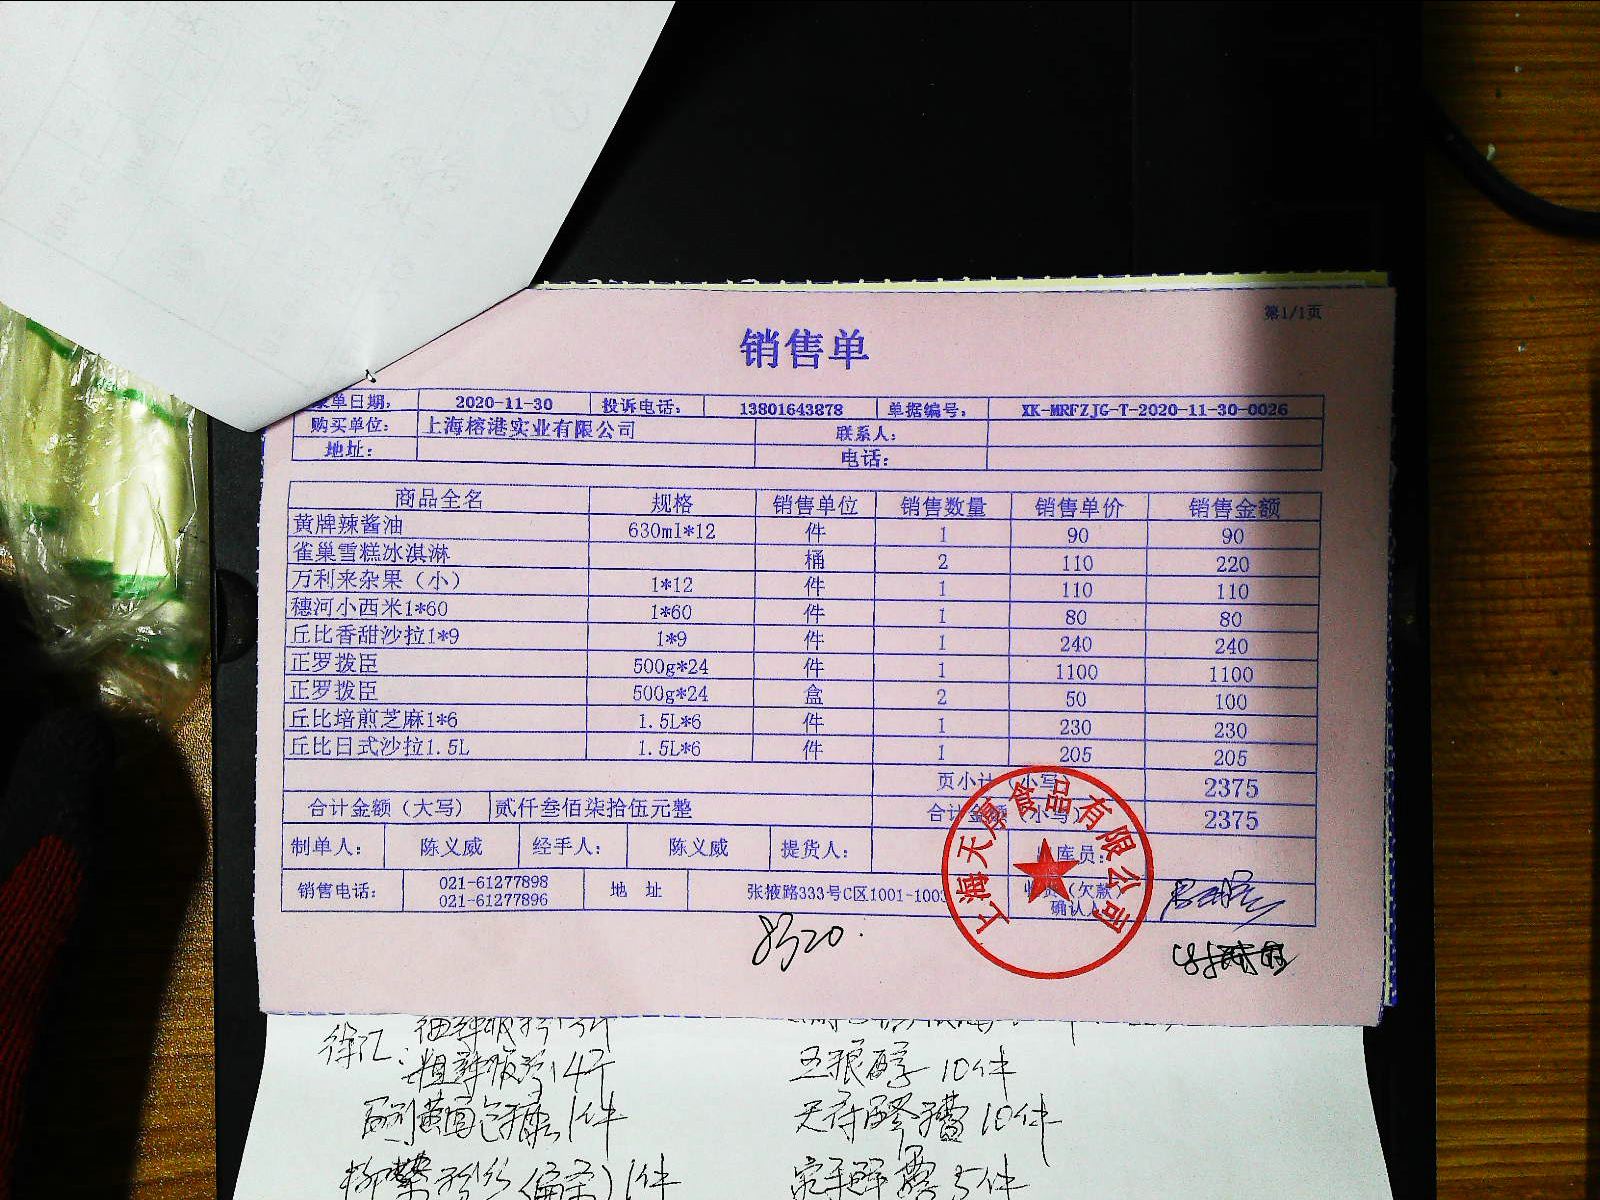 第1/1页
销售单
单日期： 2020-11-30 投诉电话： 13801643878 单据编号： XK-MRFZJG-T-2020-11-30-0026
购买单位： 上海榕港实业有限公司 联系人：
地址： 电话：
商品全名 规格 销售单位 销售数量 销售单价 销售金额
黄牌辣酱油 630ml*12 件 1 90 90
雀巢雪糕冰淇淋 桶 2 110 220
万利来杂果（小） 1*12 件 1 110 110
穗河小西米1*60 1*60 件 1 80 80
丘比香甜沙拉1*9 1*9 件 1 240 240
正罗拨臣 500g*24 件 1 1100 1100
正罗拨臣 500g*24 盒 2 50 100
丘比培煎芝麻1*6 1.5L*6 件 1 230 230
丘比日式沙拉1.5L 1.5L*6 件 1 205 205
页小计（小写） 2375
合计金额（大写） 贰仟叁佰柒拾伍元整 合计金额（小写） 2375
制单人： 陈义威 经手人： 陈义威 提货人： 库员：
销售电话： 021-61277898 021-61277896 地 址 张掖路333号C区1001-1003 收货（欠款）确认人
上海天厚食品有限公司
徐汇：
粗 14斤
1件
五粮醇 10件
天府 10件
1件
5件